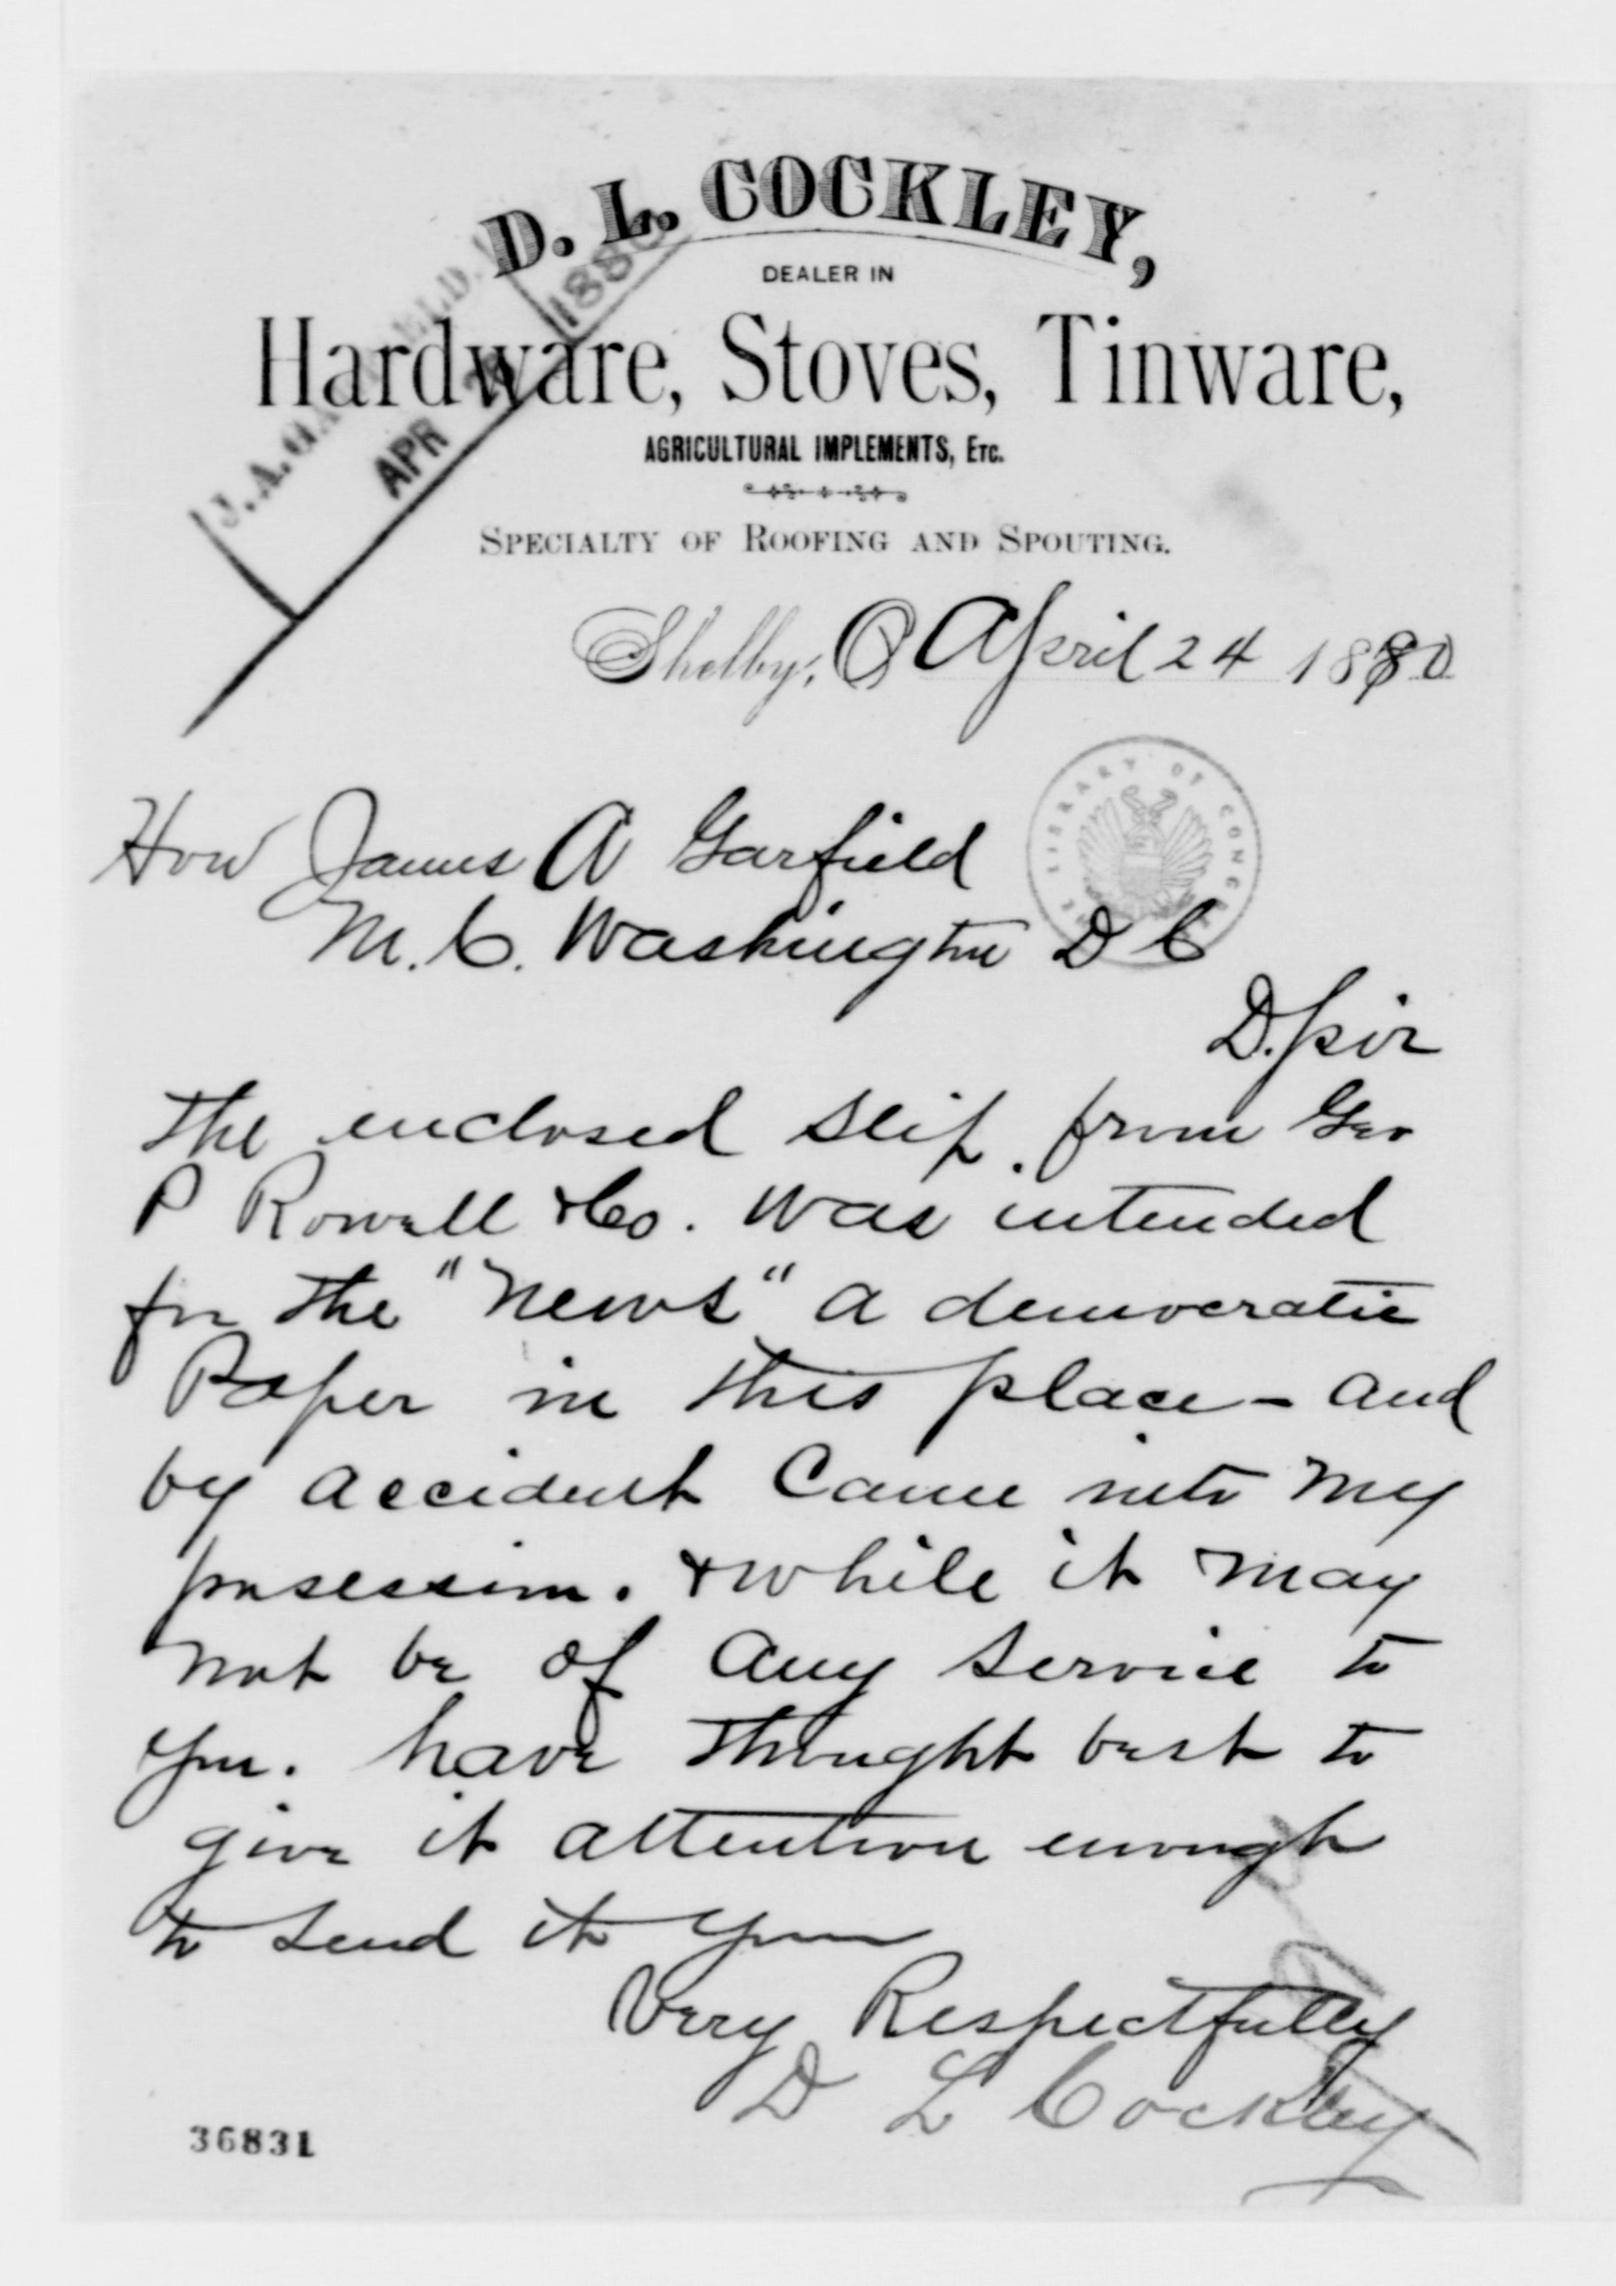 D. L. COCKLEY,
DEALER IN
Hardware, Stoves, Tinware,
AGRICULTURAL IMPLEMENTS, Etc.
SPECIALTY OF ROOFING AND SPOUTING.
J. A. GARFIELD.
APR 1880
Shelby, O April 24 1880
THE LIBRARY OF CONGRESS
Hon James A Garfield
M. C. Washington D C
D. Sir
The enclosed slip from Geo
P Rowell & Co. was intended
for the "News" a democratic
Paper in this place - and
by accident Came into my
posession. & while it may
not be of any service to
you. have thought best to
give it attention enough
to send it you
Very Respectfully
D L Cockley
36831